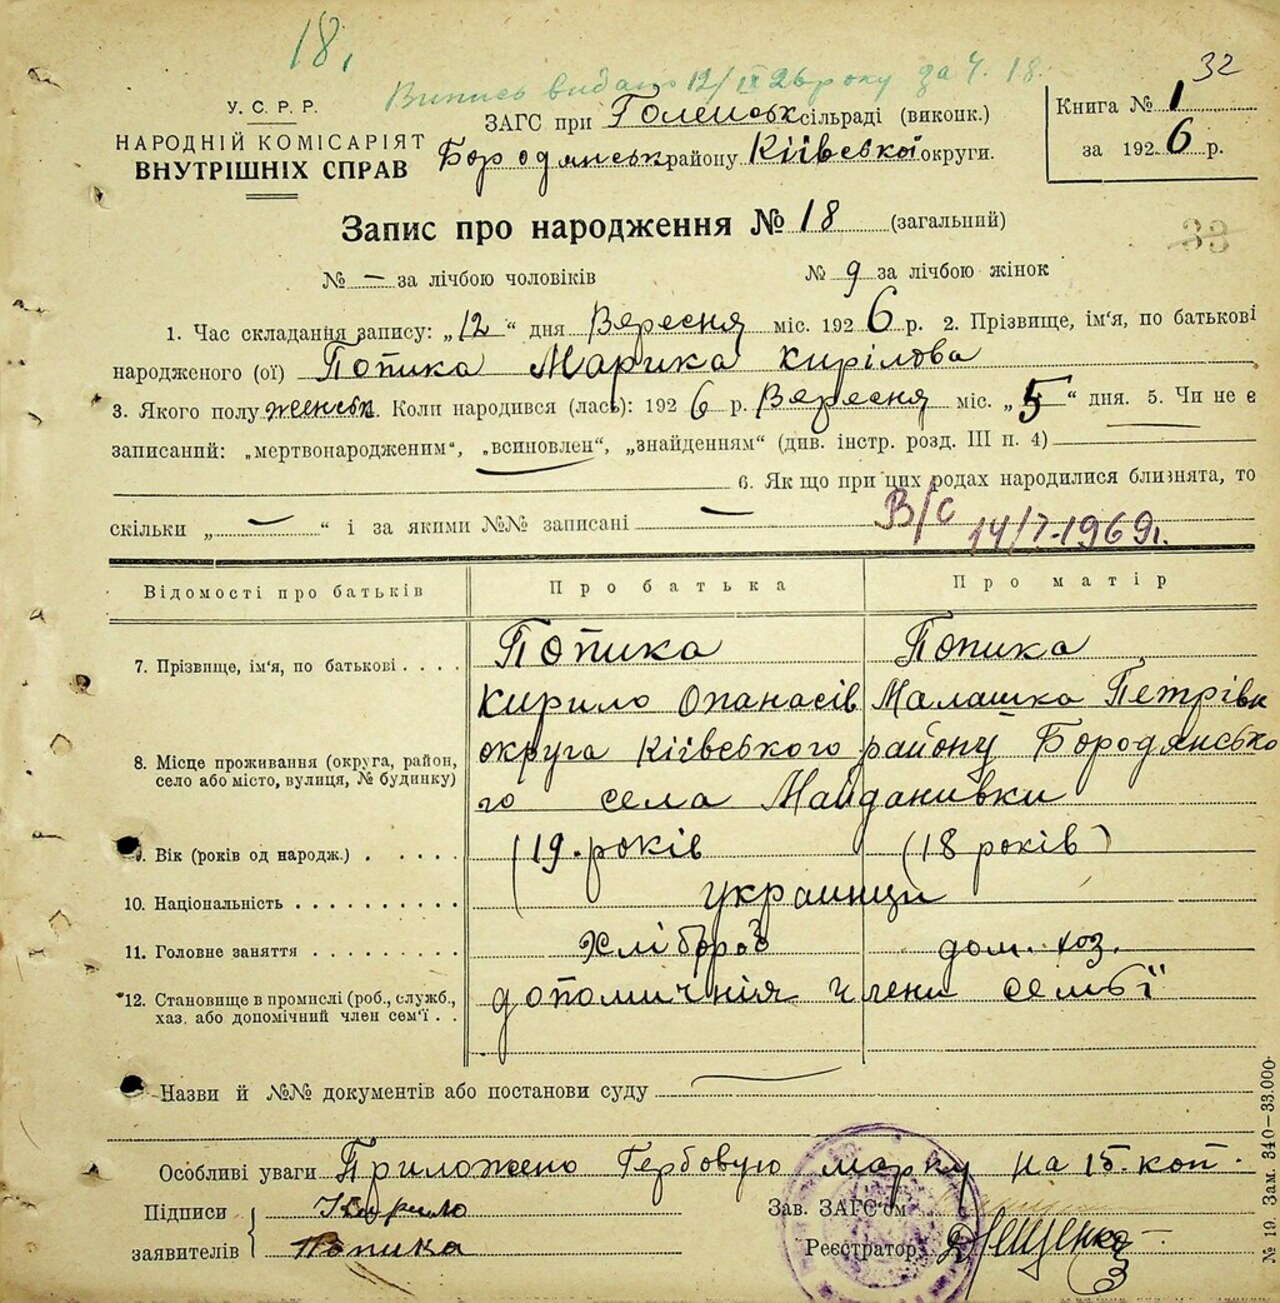 18,
Випись видано 12/IX 26 року за Ч. 18.
32
У. С. Р. Р.
НАРОДНІЙ КОМІСАРІЯТ
ВНУТРІШНІХ СПРАВ
ЗАГС при Голенськ сільраді (виконк.)
Бородянськ району Київської округи.
Книга № 1
за 1926 р.
Запис про народження № 18 (загальний)
33
№ — за лічбою чоловіків № 9 за лічбою жінок
1. Час складання запису: „12“ дня Вересня міс. 1926 р. 2. Прізвище, ім'я, по батькові
народженого (ої) Попика Марика Кирілова
3. Якого полу женськ. Коли народився (лась): 1926 р. Вересня міс. „5“ дня. 5. Чи не є
записаний: „мертвонародженим“, „всиновлен“, „знайденням“ (див. інстр. розд. III п. 4)
6. Як що при цих родах народилися близнята, то
скільки „ — “ і за якими №№ записані —
В/с 14/7-1969г.
Відомості про батьків Про батька Про матір
7. Прізвище, ім'я, по батькові . . . . Попика Попика
Кирило Опанасів Малашка Петрівн
8. Місце проживання (округа, район, село або місто, вулиця, № будинку) округа Київського району Бородянсько
го села Майданивки
9. Вік (років од народж.) . . . . . (19 . років (18 років)
10. Національність . . . . . . . . . . украинци
11. Головне заняття . . . . . . . . . Хлібороб дом. хоз.
*12. Становище в промислі (роб., служб., хаз. або допомічний член сем'ї . . дополичнія члени семьї
Назви й №№ документів або постанови суду
Особливі уваги Приложено Гербовую марку на 15. коп.
Підписи Кирило
заявителів Попика
Зав. ЗАГС'ом
Реєстратор
№ 19. Зам. 340—33.000